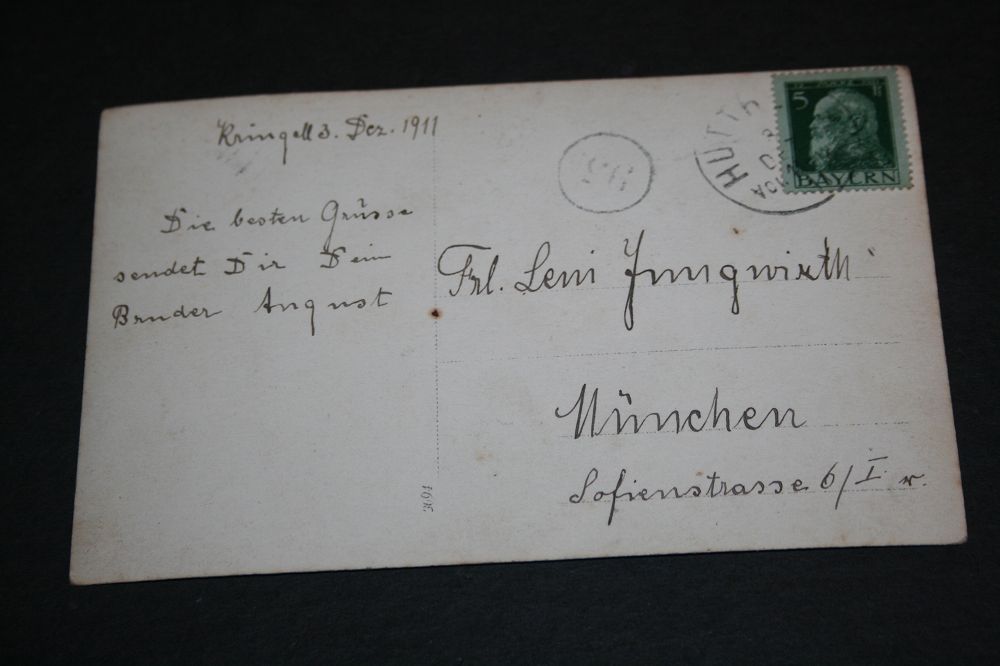 Kringell 3. Dez. 1911
Die besten Grüsse
sendet Dir Dein
Bruder August
Frl. Leni Jungwirth
München
Sofienstrasse 6/I r.
5
BAYERN
HUTTH